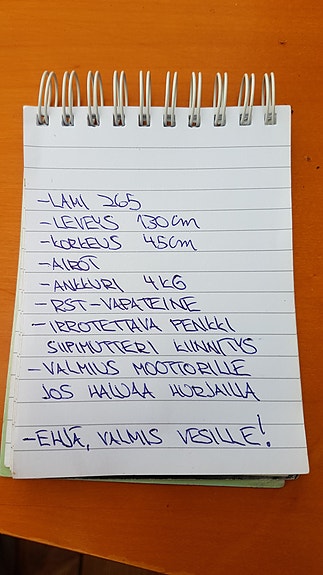 -LAHI 265
-LEVEYS 130cm
-KORKEUS 45cm
-AIROT
-ANKKURI 4KG
-RST-VAPATELINE
-IRROTETTAVA PENKKI
SIIPIMUTTERI KIINNITYS
-VALMIUS MOOTTORILLE
JOS HALUAA HURJAILLA
-EHJÄ, VALMIS VESILLE!